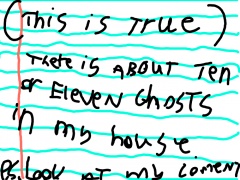 (This is True)
THere is ABOUT Ten
or ELEVEN GhOSTS
in my house
Ps. Look at my